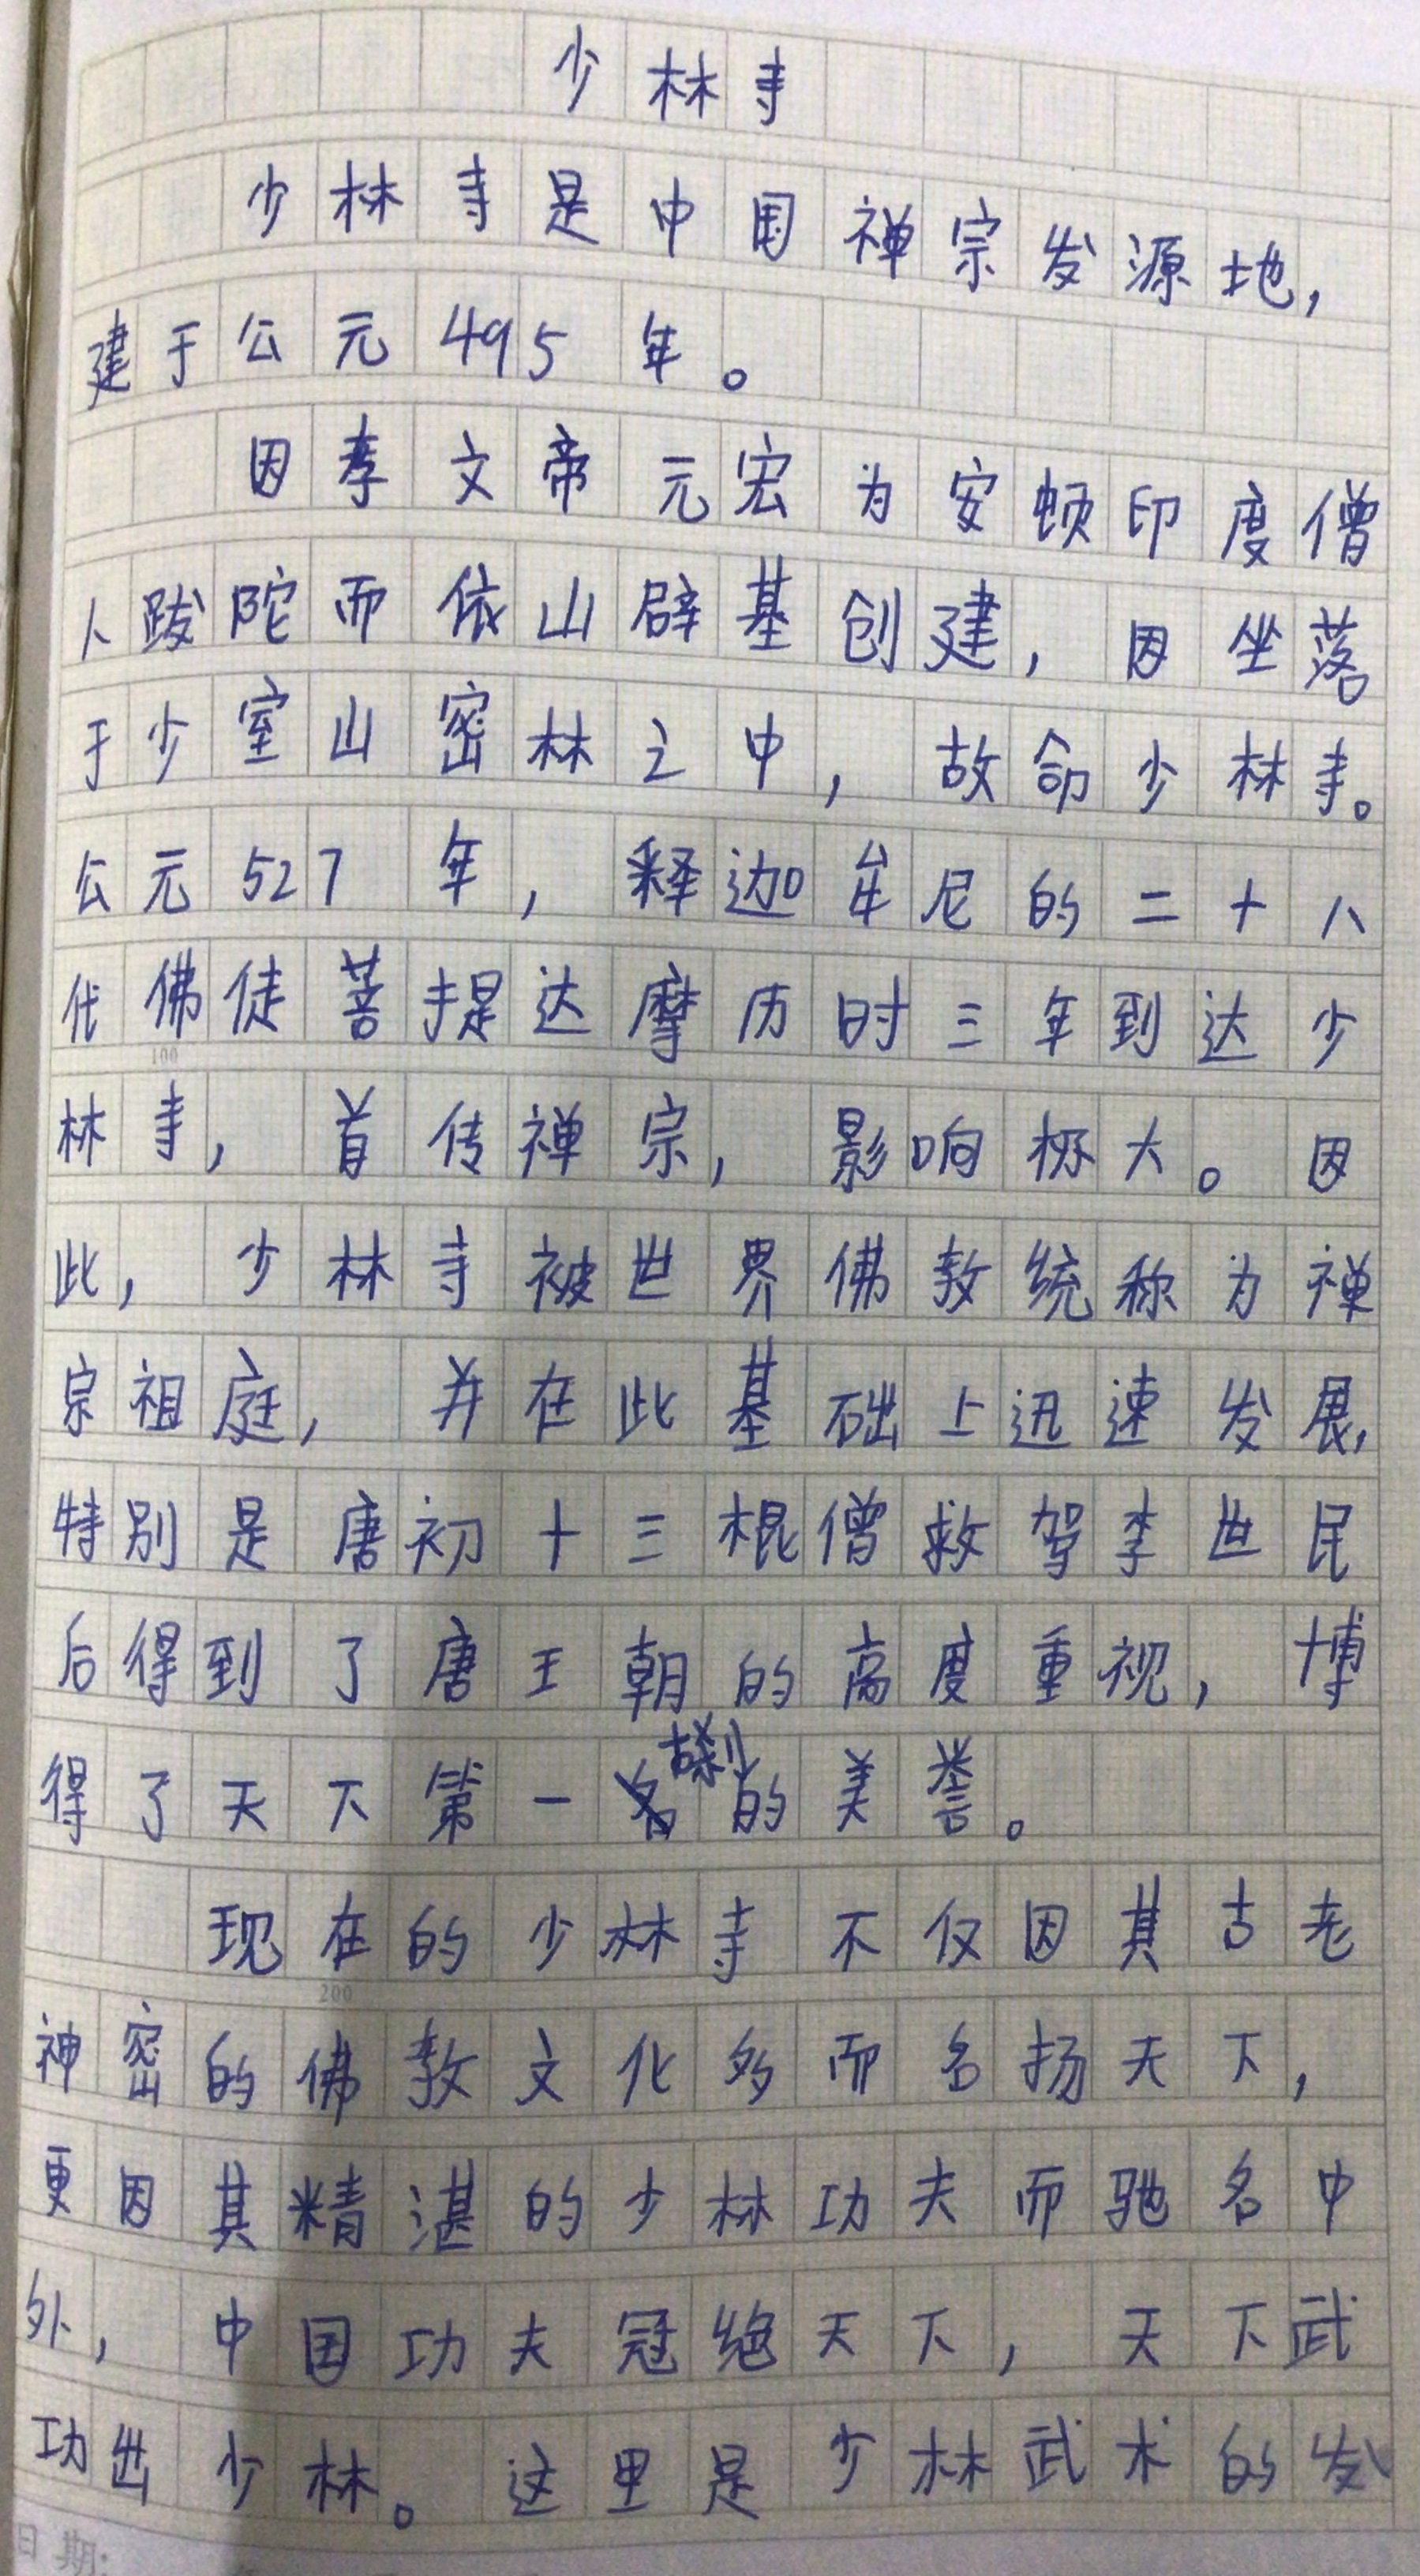 少林寺
少林寺是中国禅宗发源地,
建于公元495年。
因孝文帝元宏为安顿印度僧
人跋陀而依山辟基创建,因坐落
于少室山密林之中,故命少林寺。
公元527年,释迦牟尼的二十八
代佛徒菩提达摩历时三年到达少
100
林寺,首传禅宗,影响极大。因
此,少林寺被世界佛教统称为禅
宗祖庭,并在此基础上迅速发展,
特别是唐初十三棍僧救驾李世民
后得到了唐王朝的高度重视,博
得了天下第一古刹的美誉。
现在的少林寺不仅因其古老
200
神密的佛教文化多而名扬天下,
更因其精湛的少林功夫而驰名中
外,中国功夫冠绝天下,天下武
功出少林。这里是少林武术的发
日期: